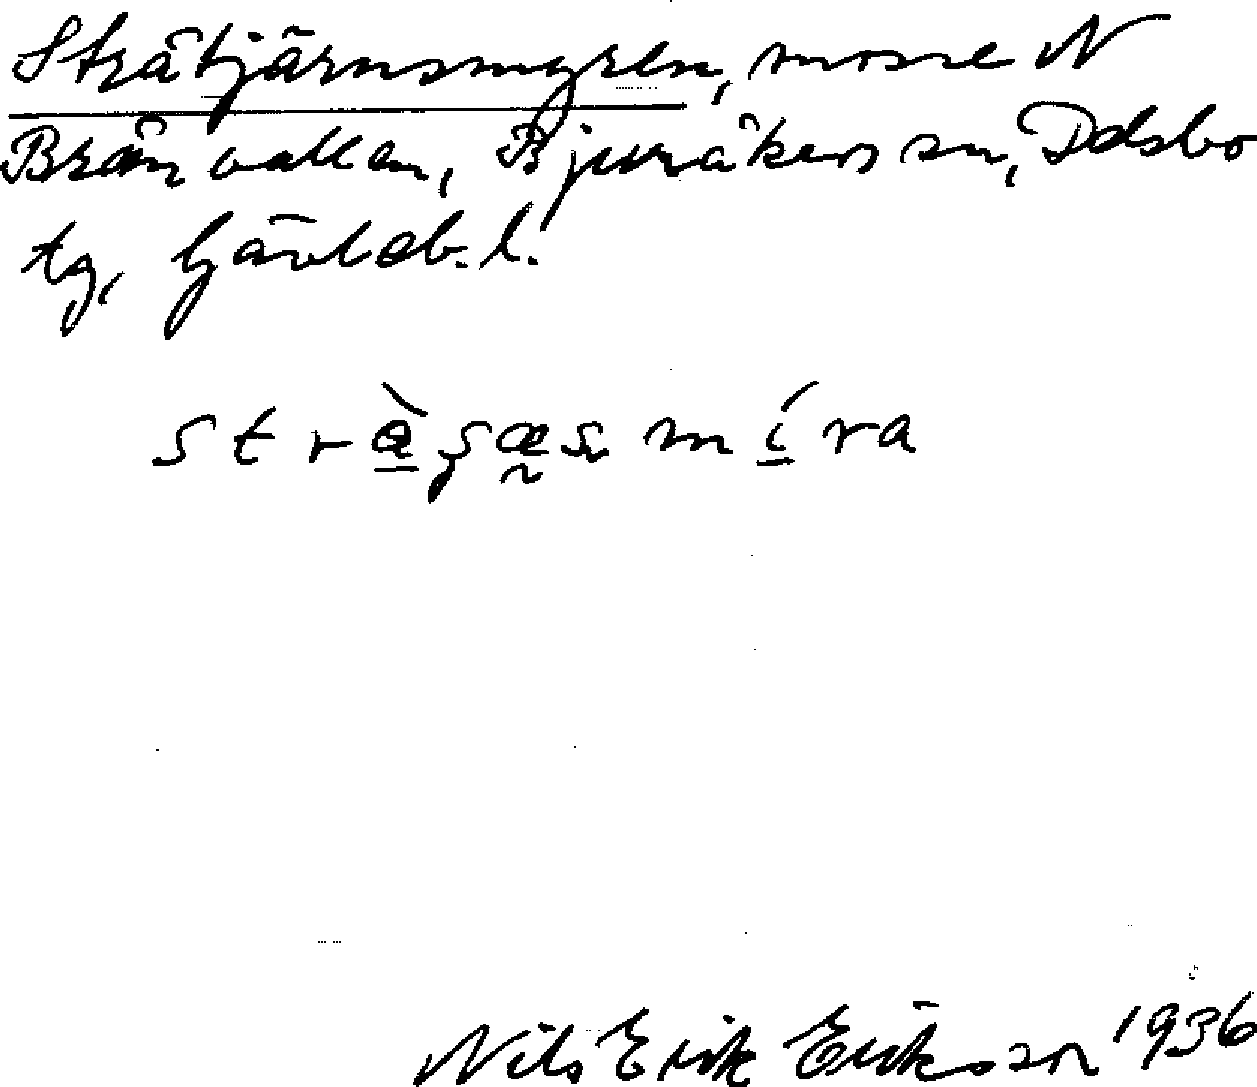 Stråtjärnsmyren, mosse N
Brånvallen, Bjuråkers sn, Delsbo
tg, Gävleb. l.
Nils Erik Eriksson 1936